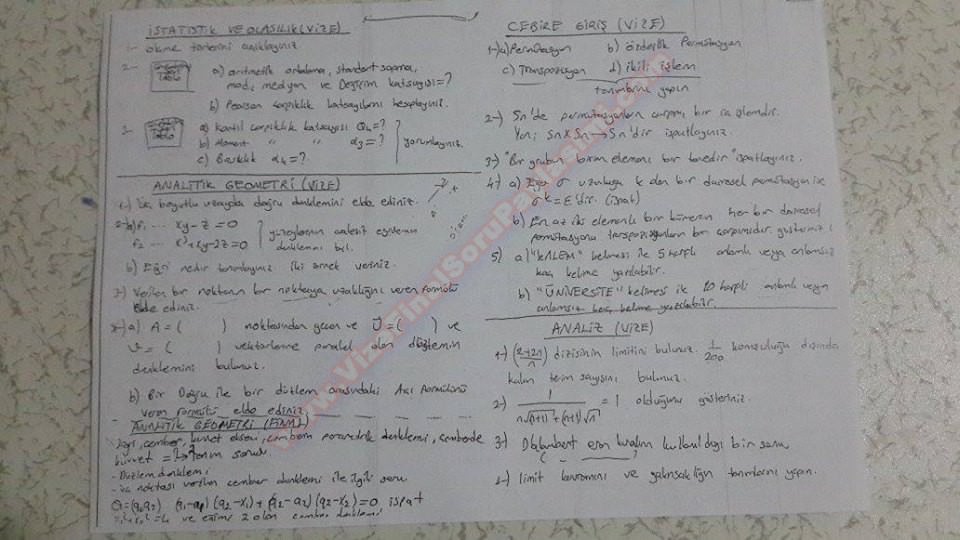 İSTATİSTİK VE OLASILIK (VİZE)
1- ölçme türlerini açıklayınız
2- a) aritmetik ortalama, standart sapma,
mod, medyan ve Değişim katsayısı=?
b) Pearson çarpıklık katsayılarını hesaplayınız.
3- a) Kantil çarpıklık katsayısı Q4=?
b) Moment " " α3=? yorumlayınız.
c) Basıklık α4=?
ANALİTİK GEOMETRİ (VİZE)
1-) Üç boyutlu uzayda doğru denklemini elde ediniz.
2-a) F1 ... xy-z=0
F2 ... x³+xy-2z=0 yüzeylerinin arakesit eğrisinin
denklemini bul.
b) Eğri nedir tanımlayınız iki örnek veriniz.
3-) Verilen bir noktanın bir noktaya uzaklığını veren formülü
elde ediniz.
a) A=( ) noktasından geçen ve U=( ) ve
V=( ) vektörlerine paralel olan düzlemin
denklemini bulunuz.
b) Bir Doğru ile bir düzlem arasındaki Açı formülünü
veren formülü elde ediniz.
ANALİTİK GEOMETRİ (FİNAL)
çember, kuvvet ekseni, çemberin parametrik denklemi, çemberde
kuvvet = tanım sorusu
- Düzlem denklemi
- üç noktası verilen çember denklemi ile ilgili soru
ispat
ve eğimi 2 olan
CEBİRE GİRİŞ (VİZE)
1-) a) Permütasyon b) özdeşlik Permütasyon
c) Transpozisyon d) ikili işlem
tanımlarını yapın
2-) Sn'de permütasyonların çarpımı bir iç işlemdir.
Yani; Sn x Sn → Sn'dir ispatlayınız.
3-) "Bir grubun birim elemanı bir tanedir" ispatlayınız.
4-) a) Eğer σ uzunluğu k olan bir dairesel permütasyon ise
σ^k=ε'dir. (ispat)
b) En az iki elemanlı bir kümenin her bir dairesel
permütasyonu transpozisyonların bir çarpımıdır. gösteriniz.
5) a) "KALEM" kelimesi ile 5 harfli anlamlı veya anlamsız
kaç kelime yazılabilir.
b) "ÜNİVERSİTE" kelimesi ile 10 harfli anlamlı veya
anlamsız kaç kelime yazılabilir.
ANALİZ (VİZE)
1-) (2+2n/n) dizisinin limitini bulunuz. 1/200 komşuluğu dışında
kalan terim sayısını bulunuz.
2-) 1/n√(n+1)+(n+1)√n = 1 olduğunu gösteriniz.
3-) Dalembert oran kuralının kullanıldığı bir soru
4-) limit kavramını ve yakınsaklığın tanımlarını yapın.
www.VizeFinalSoruPaylasimi.com